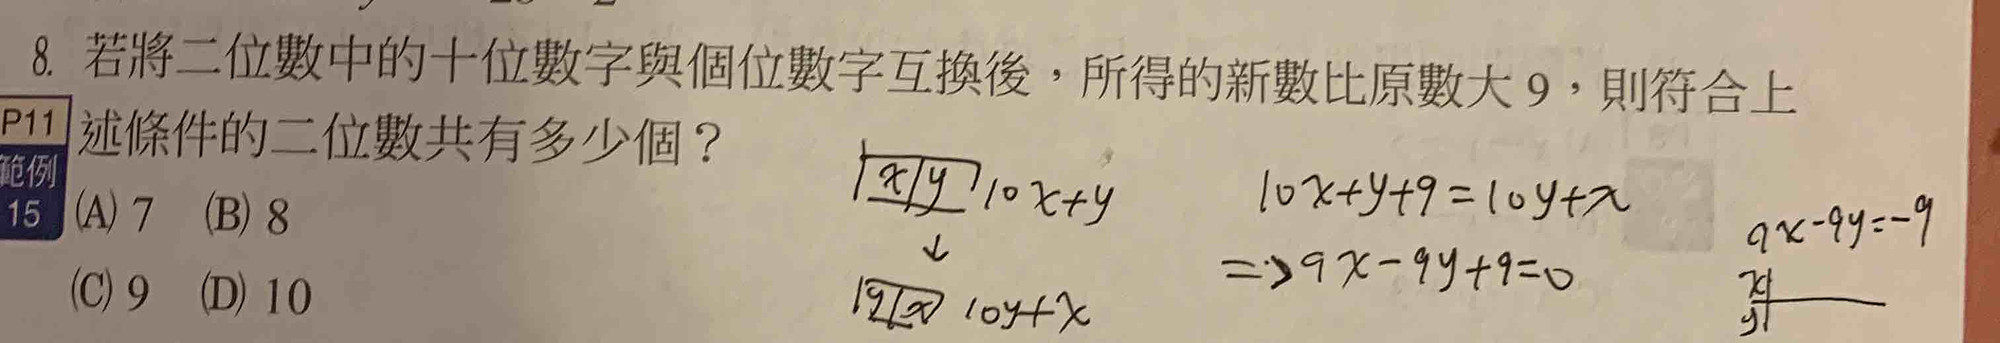 8. 若將二位數中的十位數字與個位數字互換後，所得的新數比原數大 9，則符合上
P11 述條件的二位數共有多少個？
範例
15
(A) 7 (B) 8
(C) 9 (D) 10
x y 10x+y
↓
y x 10y+x
10x+y+9=10y+x
=>9x-9y+9=0
9x-9y=-9
x
y